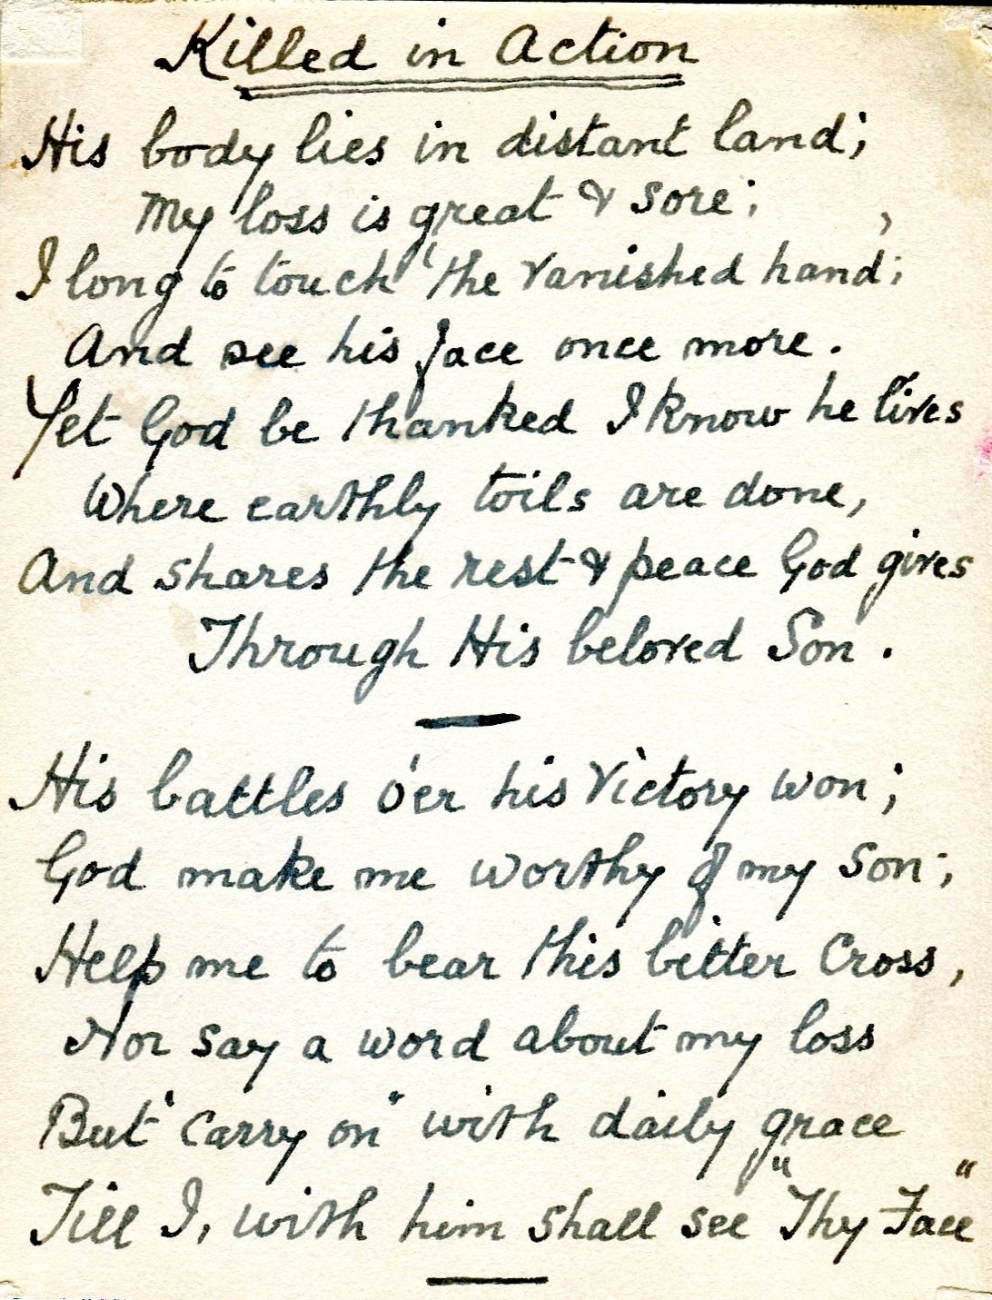 Killed in Action
His body lies in distant land;
My loss is great & sore;
I long to touch the vanished hand;
And see his face once more.
Yet God be thanked I know he lives
Where earthly toils are done,
And shares the rest & peace God gives
Through His beloved Son.
His battles o'er his Victory won;
God make me worthy of my son;
Help me to bear this bitter Cross,
Nor say a word about my loss
But "carry on" with daily grace
Till I, with him shall see "Thy Face"